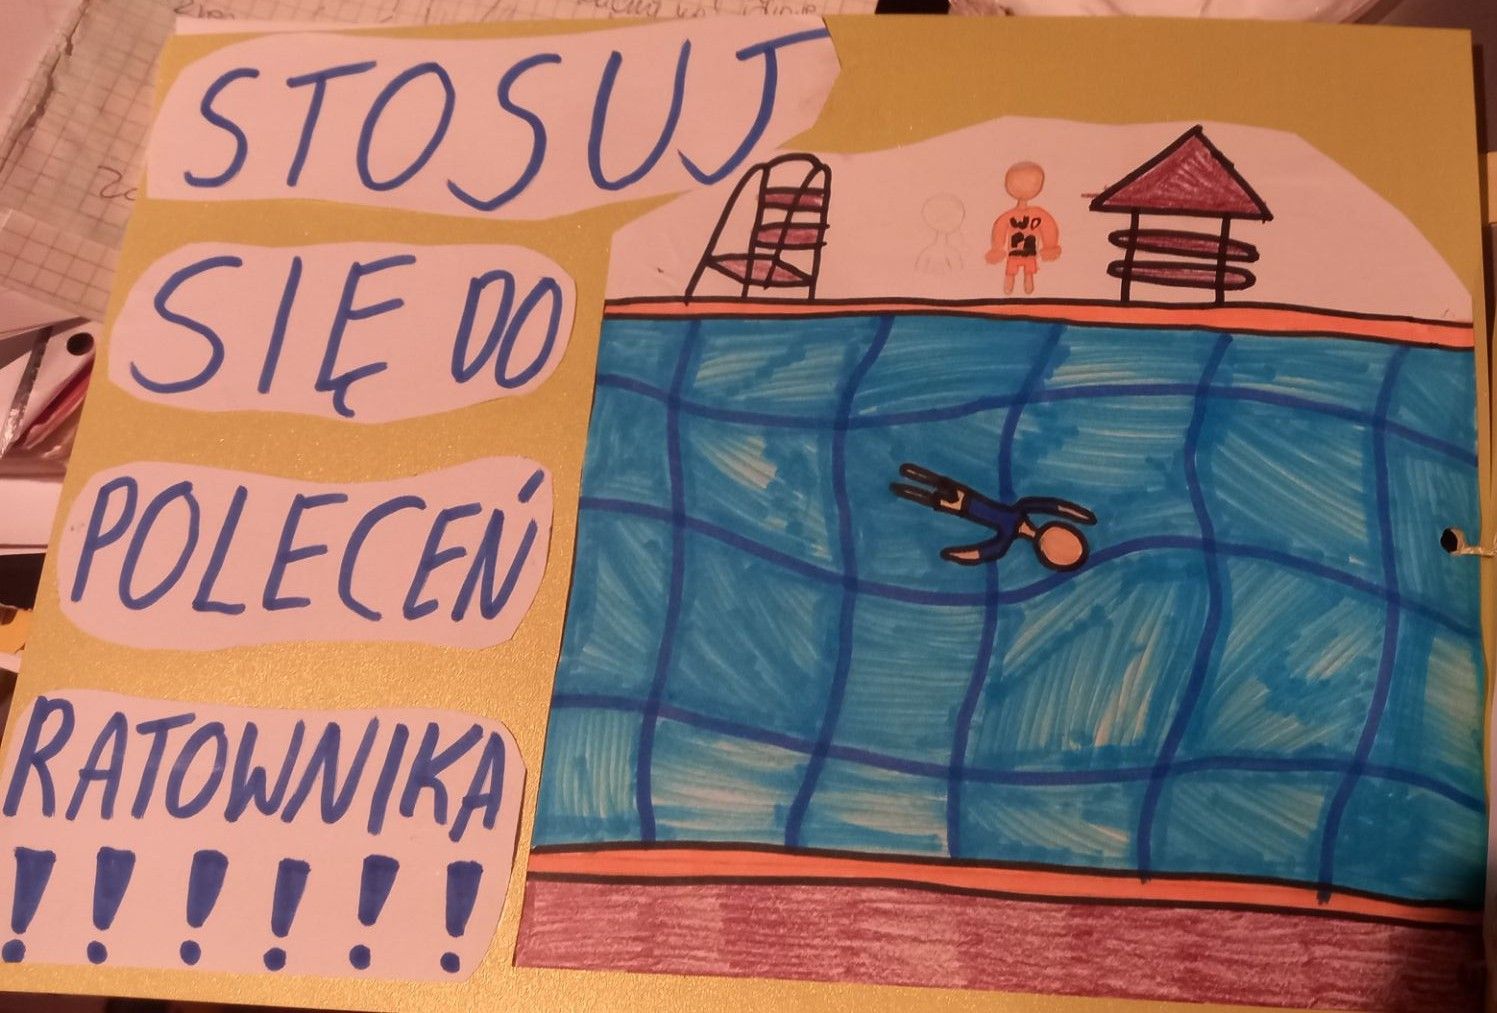 STOSUJ
SIĘ DO
POLECEŃ
RATOWNIKA
!!!!!!
WO
PR